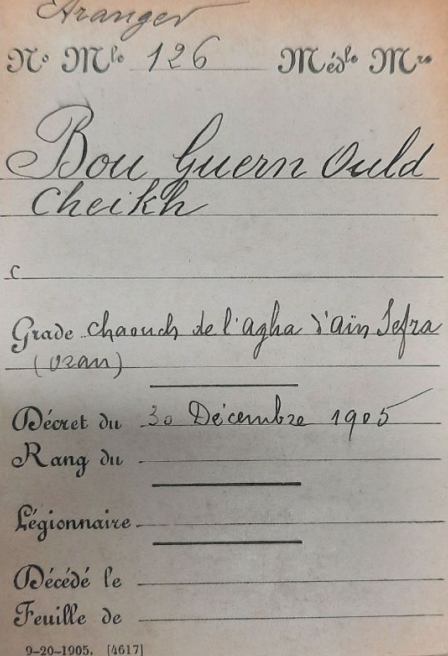 Etranger
Nº Mle 126 Médle Mre
Bou Guern Ould
Cheikh
C
Grade chaouch de l'agha d'Aïn Sefra
(Oran)
Décret du 30 Décembre 1905
Rang du
Légionnaire
Décédé le
Feuille de
9-20-1905. [4617]